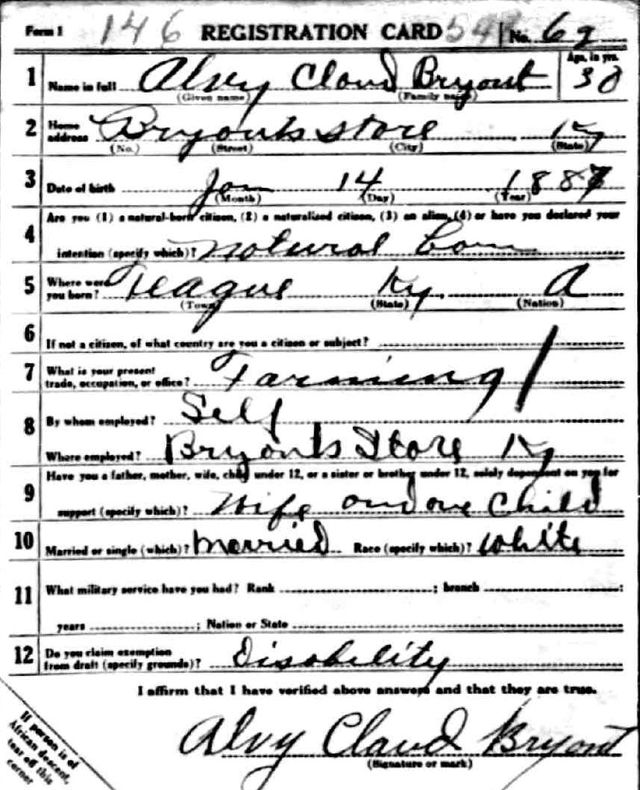 Form 1 146 REGISTRATION CARD No. 62
1 Name in full Alvy Claud Bryant Age, in yrs. 30
(Given name) (Family name)
2 Home address Bryants Store, Ky
(No.) (Street) (City) (State)
3 Date of birth Jan 14 1887
(Month) (Day) (Year)
4 Are you (1) a natural-born citizen, (2) a naturalized citizen, (3) an alien, (4) or have you declared your
intention (specify which)? natural born
5 Where were you born? Teague Ky. A
(Town) (State) (Nation)
6 If not a citizen, of what country are you a citizen or subject?
7 What is your present trade, occupation, or office? Farming
8 By whom employed? Self
Where employed? Bryants Store Ky
9 Have you a father, mother, wife, child under 12, or a sister or brother under 12, solely dependent on you for
support (specify which)? Wife and one Child
10 Married or single (which)? Married Race (specify which)? White
11 What military service have you had? Rank ; branch ;
years ; Nation or State
12 Do you claim exemption from draft (specify grounds)? Disability
I affirm that I have verified above answers and that they are true.
Alvy Claud Bryant
(Signature or mark)
If person is of
African descent,
tear off this
corner